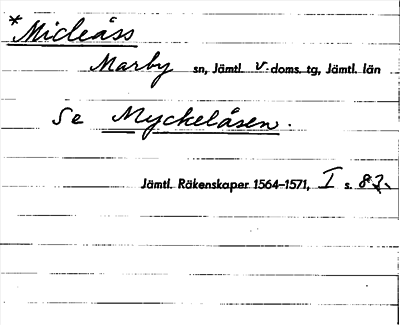 *Micleåss
Marby sn, Jämtl. v. doms. tg, Jämtl. län
Se Myckelåsen.
Jämtl. Räkenskaper 1564–1571, I s. 82.